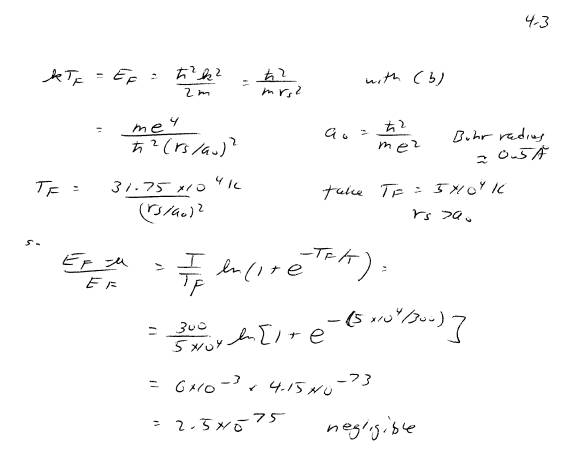 4-3
kT_F = E_F = ħ²k²/2m = ħ²/m r_s² with (b)
= me⁴/ħ²(r_s/a₀)² a₀ = ħ²/me² Bohr radius ≈ 0.5Å
T_F = 31.75×10⁴K/(r_s/a₀)² take T_F = 5×10⁴K
r_s > a₀
so
E_F-μ/E_F = T/T_F ln(1+e^{-T_F/T}) =
= 300/5×10⁴ ln[1+e^{-(5×10⁴/300)}]
= 6×10⁻³ × 4.15×10⁻⁷³
= 2.5×10⁻⁷⁵ negligible